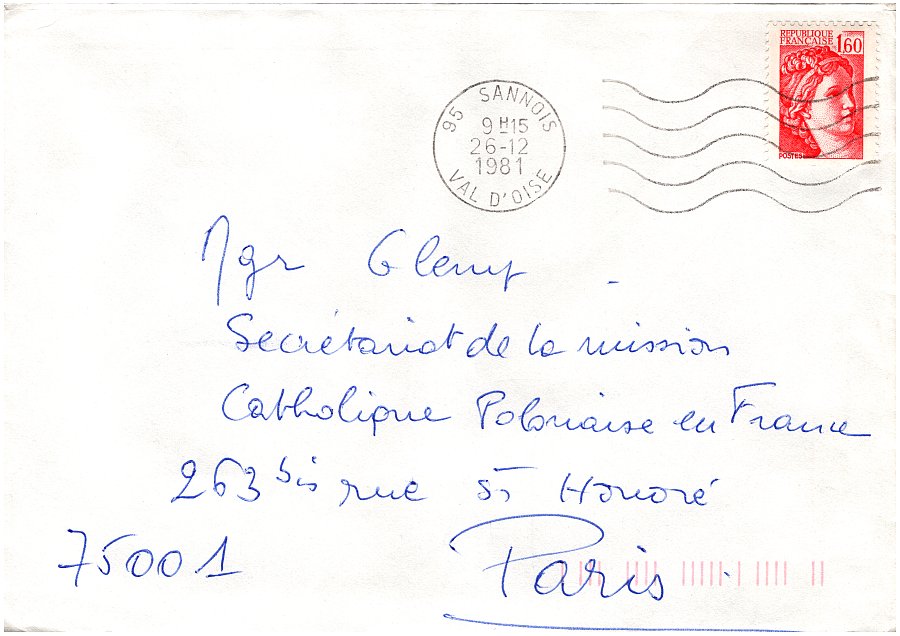 RÉPUBLIQUE
FRANÇAISE 1,60
POSTES
95 SANNOIS
9H15
26-12
1981
VAL D'OISE
Mgr Glemp
Secrétariat de la mission
Catholique Polonaise en France
263 bis rue St Honoré
75001 Paris